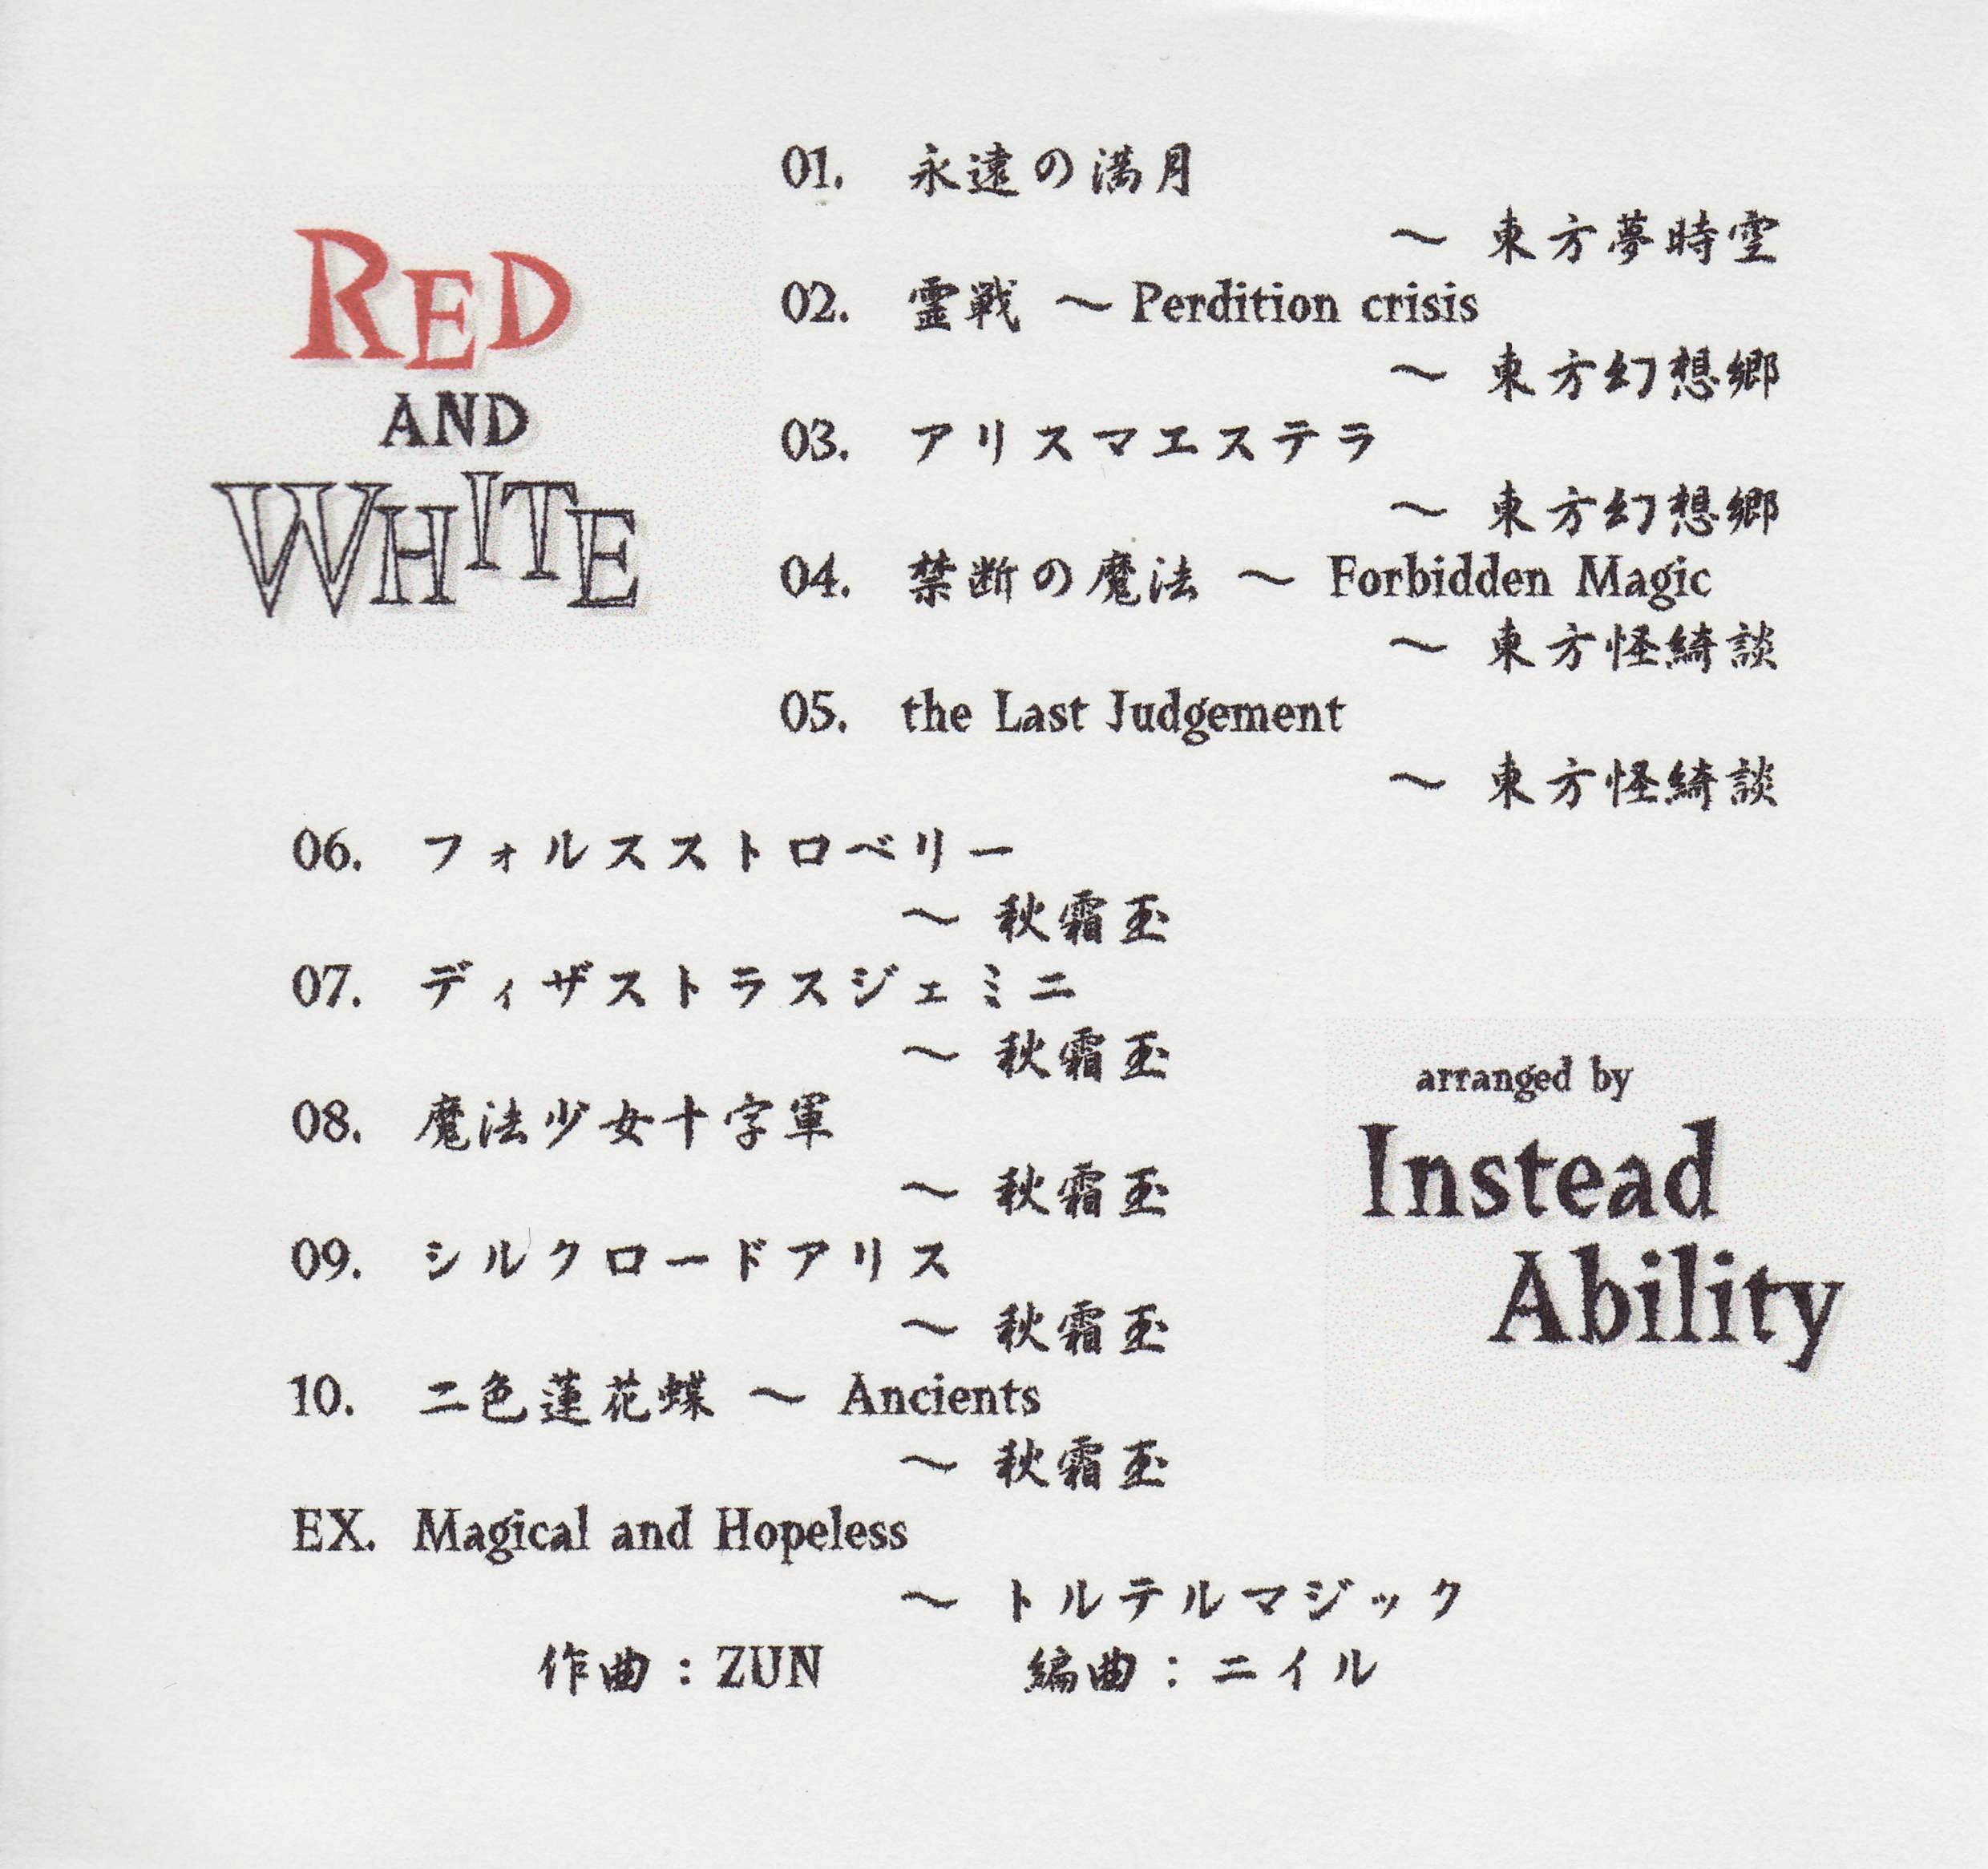 RED
AND
WHITE
01. 永遠の満月
～ 東方夢時空
02. 霊戦 ～ Perdition crisis
～ 東方幻想郷
03. アリスマエステラ
～ 東方幻想郷
04. 禁断の魔法 ～ Forbidden Magic
～ 東方怪綺談
05. the Last Judgement
～ 東方怪綺談
06. フォルスストロベリー
～ 秋霜玉
07. ディザストラスジェミニ
～ 秋霜玉
08. 魔法少女十字軍
～ 秋霜玉
09. シルクロードアリス
～ 秋霜玉
10. 二色蓮花蝶 ～ Ancients
～ 秋霜玉
EX. Magical and Hopeless
～ トルテルマジック
作曲：ZUN 編曲：ニイル
arranged by
Instead
Ability